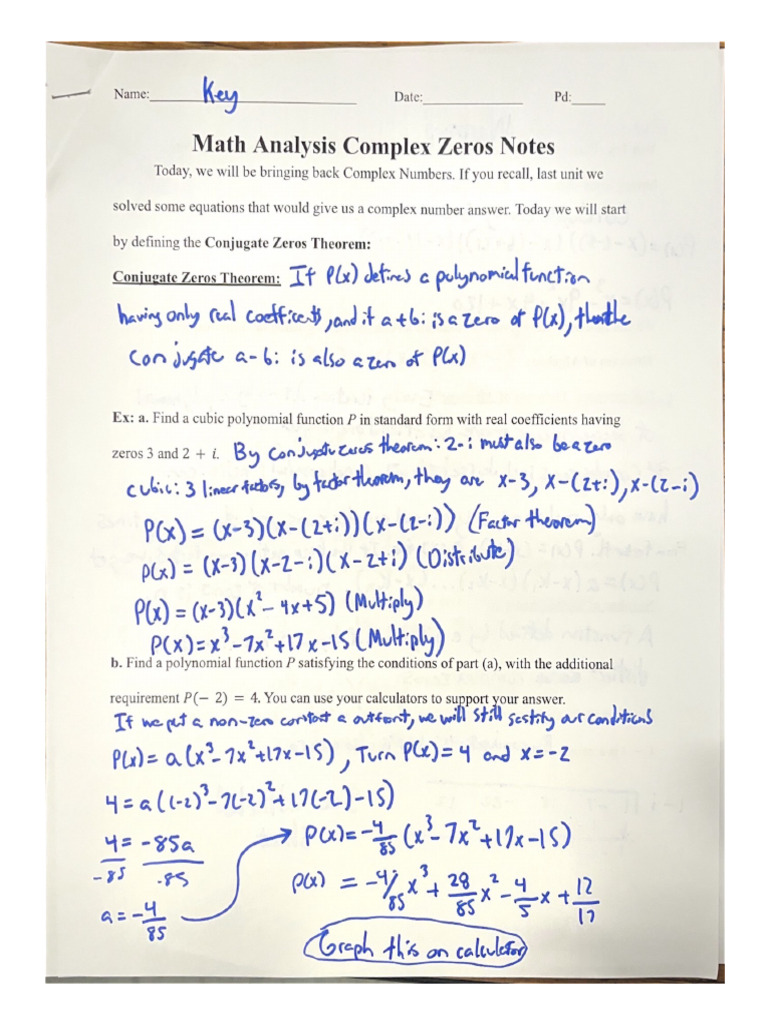 Name: Key Date: Pd:
Math Analysis Complex Zeros Notes
Today, we will be bringing back Complex Numbers. If you recall, last unit we
solved some equations that would give us a complex number answer. Today we will start
by defining the Conjugate Zeros Theorem:
Conjugate Zeros Theorem: If P(x) defines a polynomial function
having only real coefficents, and if a+bi is a zero of P(x), then the
conjugate a-bi is also a zero of P(x)
Ex: a. Find a cubic polynomial function P in standard form with real coefficients having
zeros 3 and 2 + i. By conjugate zeros theorem: 2-i must also be a zero
cubic: 3 linear factors, by factor theorem, they are x-3, x-(2+i), x-(2-i)
P(x) = (x-3)(x-(2+i))(x-(2-i)) (Factor theorem)
P(x) = (x-3)(x-2-i)(x-2+i) (Distribute)
P(x) = (x-3)(x²-4x+5) (Multiply)
P(x) = x³-7x²+17x-15 (Multiply)
b. Find a polynomial function P satisfying the conditions of part (a), with the additional
requirement P(− 2) = 4. You can use your calculators to support your answer.
If we put a non-zero constant a outfront, we will still sastify our conditions
P(x) = a(x³-7x²+17x-15), Turn P(x)=4 and x=-2
4 = a((-2)³-7(-2)²+17(-2)-15)
4 = -85a
-85 -85
a = -4/85
P(x) = -4/85 (x³-7x²+17x-15)
P(x) = -4/85 x³ + 28/85 x² - 4/5 x + 12/17
Graph this on calculator